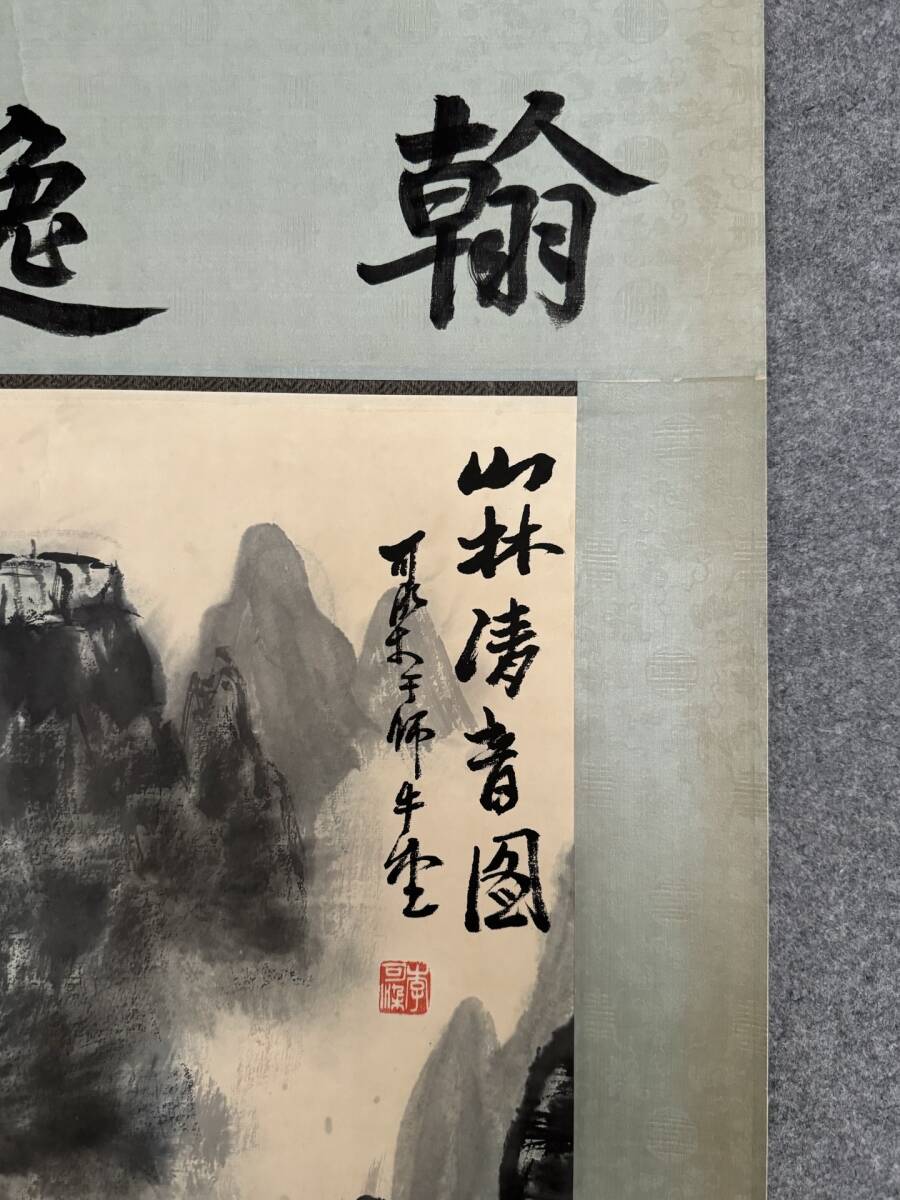 翰逸
山林清音图
可染于师牛堂
李可染